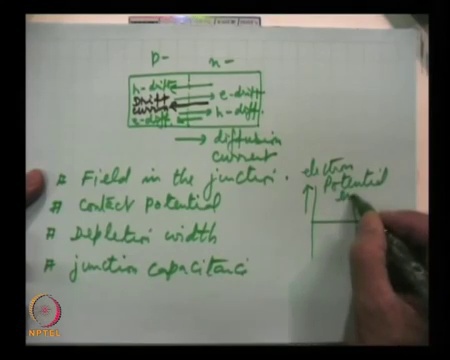 p- n-
h-drift
Drift e-drift
current h-diff.
e-diff
→ diffusion
current
# Field in the junction.
# Contact potential
# Depletion width
# junction capacitance
electron
Potential
NPTEL